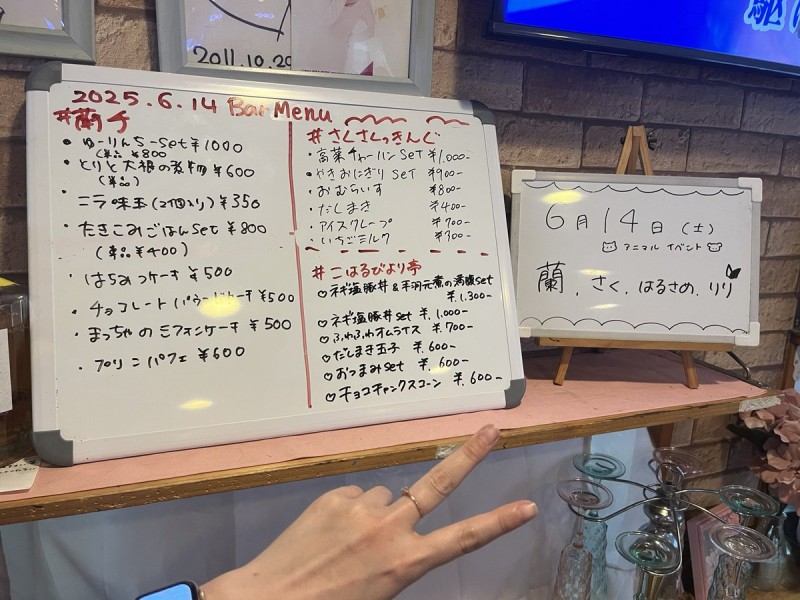 2011.10.29
2025.6.14 Bar Menu
#蘭チ
・ゆーりんちーset ¥1000
(単品 ¥800
・とりと大根の煮物 ¥600
(単品)
・ニラ味玉(2個入り) ¥350
・たきこみごはんset ¥800
(単品 ¥400)
・はちみつケーキ ¥500
・チョコレートパウンドケーキ ¥500
・まっちゃのシフォンケーキ ¥500
・プリンパフェ ¥600
#さくさくっきんぐ
・高菜チャーハンset ¥1.000-
・やきおにぎりset ¥900-
・おむらいす ¥800-
・だしまき ¥400-
・アイスクレープ ¥700-
・いちごミルク ¥300-
#こはるびより亭
♡ネギ塩豚丼&手羽元煮の満腹set
¥.1.300-
♡ネギ塩豚丼set ¥.1.000-
♡ふわふわオムライス ¥.700-
♡だしまき玉子 ¥.600-
♡おつまみset ¥.600-
♡チョコチャンクスコーン ¥.600-
6月14日(土)
アニマルイベント
蘭、さく、はるさめ、リリ